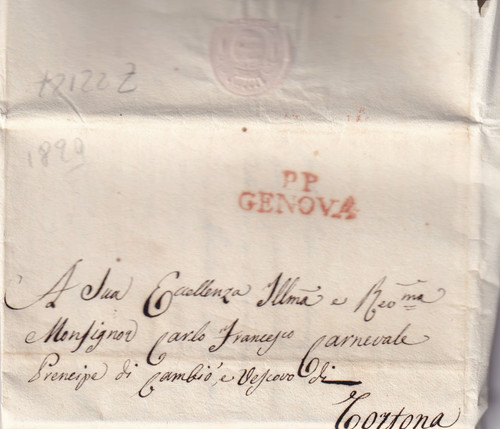 +2122 Z
1829
P.P
GENOVA
A Sua Eccellenza Illma e Revma
Monsignor Carlo Francesco Carnevale
Prencipe di Cambiò e Vescovo di
Tortona